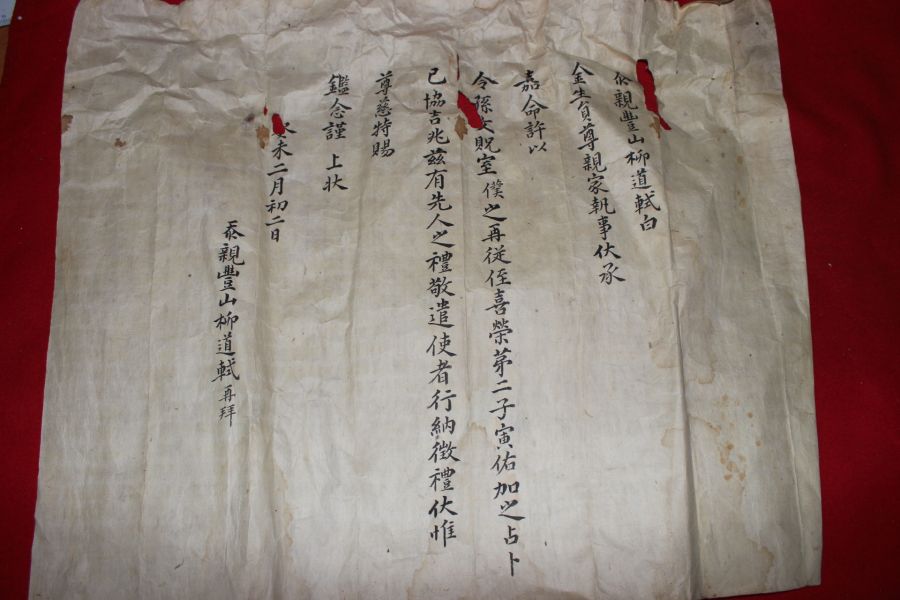 忝親豐山柳道軾白
金生員尊親家執事伏承
嘉命許以
令孫女貺室僕之再從侄喜榮第二子寅佑加之占卜
已協吉兆茲有先人之禮敬遣使者行納徵禮伏惟
尊慈特賜
鑑念謹 上狀
癸未二月初二日
忝親豐山柳道軾再拜